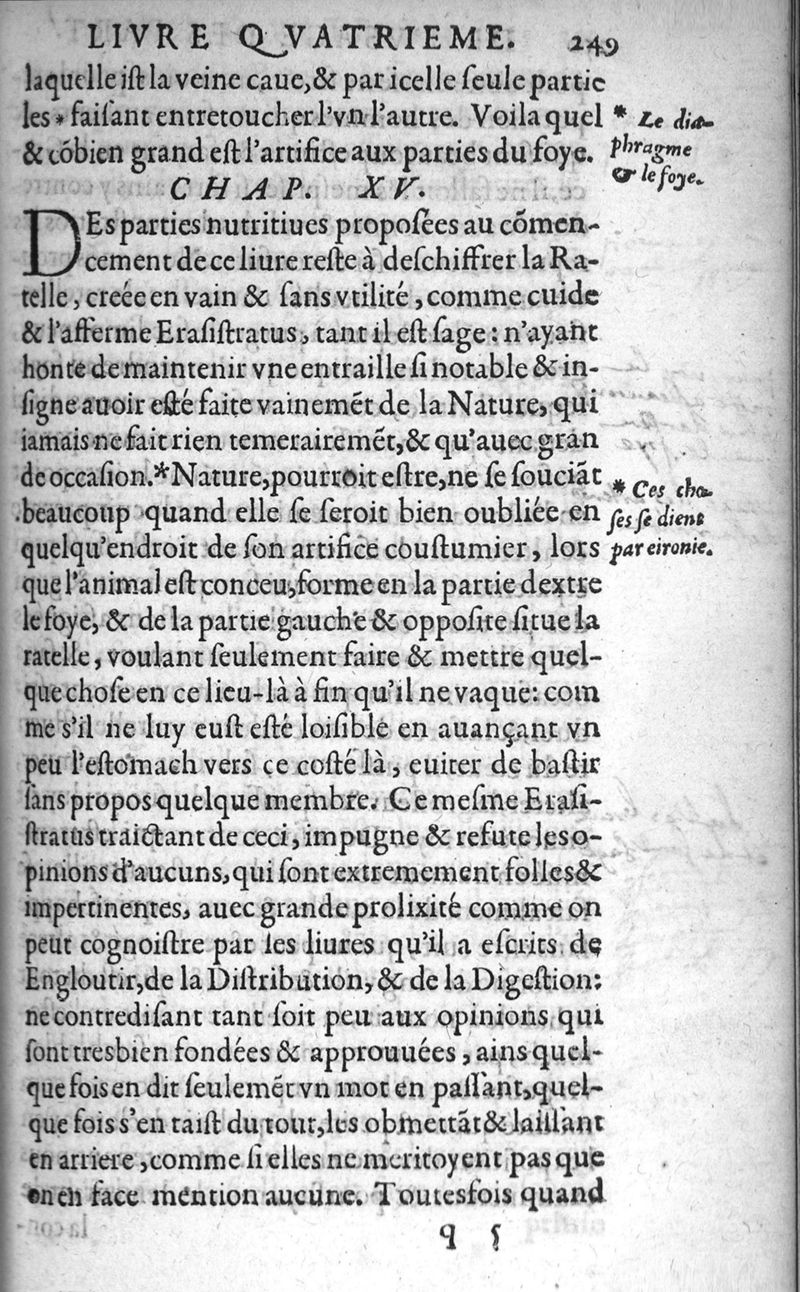 LIVRE QVATRIEME. 249
laquelle ist la veine caue, & par icelle ſeule partie
les * faiſant entretoucher l'vn l'autre. Voila quel
& cõbien grand eſt l'artifice aux parties du foye.
* Le dia-
phragme
& le foye.
CHAP. XV.
DEs parties nutritiues propoſées au cõmen-
cement de ce liure reſte à deſchiffrer la Ra-
telle, creée en vain & ſans vtilité, comme cuide
& l'afferme Eraſiſtratus, tant il eſt ſage: n'ayant
honte de maintenir vne entraille ſi notable & in-
ſigne auoir eſté faite vainemẽt de la Nature, qui
iamais ne fait rien temerairemẽt, & qu'auec gran
de occaſion.* Nature, pourroit eſtre, ne ſe ſouciãt
beaucoup quand elle ſe ſeroit bien oubliée en
quelqu'endroit de ſon artifice couſtumier, lors
* Ces cho-
ſes ſe dient
par eironie.
que l'animal eſt conceu, forme en la partie dextre
le foye, & de la partie gauche & oppoſite ſitue la
ratelle, voulant ſeulement faire & mettre quel-
que choſe en ce lieu-là à fin qu'il ne vaque: com
me s'il ne luy euſt eſté loiſible en auançant vn
peu l'eſtomach vers ce coſté là, euiter de baſtir
ſans propos quelque membre. Ce meſme Eraſi-
ſtratus traictant de ceci, impugne & refute les o-
pinions d'aucuns, qui ſont extremement folles &
impertinentes, auec grande prolixité comme on
peut cognoiſtre par les liures qu'il a eſcrits de
Engloutir, de la Diſtribution, & de la Digeſtion:
ne contrediſant tant ſoit peu aux opinions qui
ſont tresbien fondées & approuuées, ains quel-
que fois en dit ſeulemẽt vn mot en paſſant, quel-
que fois s'en taiſt du tout, les obmettãt & laiſſant
en arriere, comme ſi elles ne meritoyent pas que
on en face mention aucune. Toutesfois quand
q 5